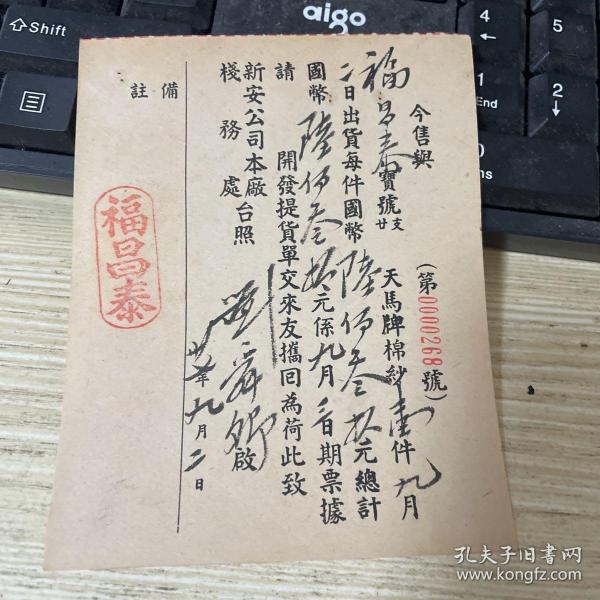 今售與
(第0000268號)
福昌泰寶號廿支天馬牌棉紗壹件九月
二日出貨每件國幣陸佰叁拾元總計
國幣陸佰叁拾元係九月二日期票據
請 開發提貨單交來友攜回為荷此致
新安公司本廠
棧務處 台照
劉舜卿啟
年九月二日
備註
福昌泰
aigo
Shift
4
5
1
2
End
0
Ins
孔夫子旧书网
www.kongfz.com